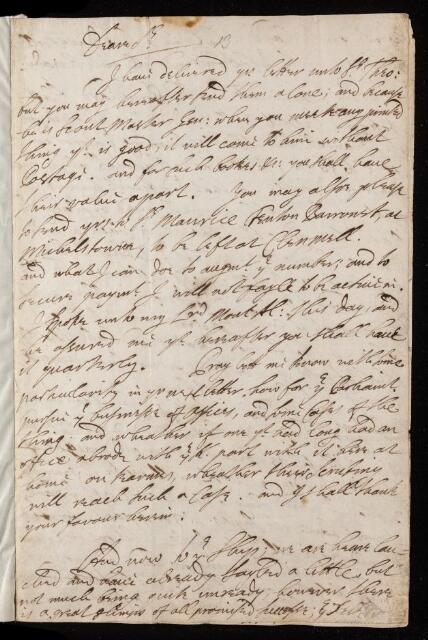 Deare Sr 13
I have delivered yr letter unto Sr Theo:
but you may hereafter send them alone; and because
he is scout Master Gen: when you meete any printed
thing yt is good; it will come to him without
Postage. and for such bookes &c you shall have
their value apart. You may also please
to send yrs to Sr Maurice Fenton Barronet, at
Michelstowne, to be left at Clonmell.
and what I can doe to augmt ye number; and to
secure paymt I will not fayle to be active in.
I spoke unto my Lrd Mont Al: this day, and
he assured me yt hereafter you shall have
it quarterly. Pray let me know with some
particularity in yr next letter, how far ye Parliamt
pursue ye businesse of offices, and wt
thing: and wheather if one yt had long had an
office abrode with ye part with it here at
home on
will reach such a Case. and I shall thank
your favour herein.
And now Sr
and have already tasted a little, but
not much being
is a great of all promised